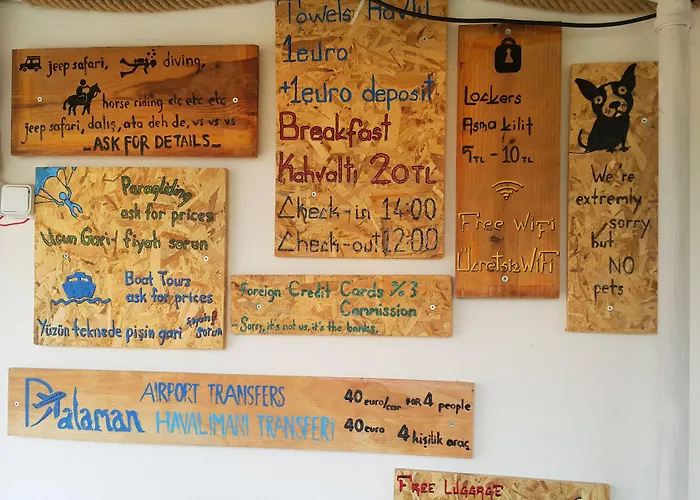 jeep safari, diving,
horse riding etc etc etc
jeep safari, dalış, ata deh de, vs vs vs
ASK FOR DETAILS
Towels Havlu
1euro
+1euro deposit
Breakfast
Kahvaltı 20TL
Check-in 14:00
Check-out 12:00
Lockers
Asma kilit
5TL - 10TL
Free WiFi
Ücretsiz WiFi
We're
extremly
sorry
but
NO
pets
Paragliding
ask for prices
Uçun Gari-! fiyatı sorun
Boat Tours
ask for prices
Yüzün teknede pişin gari fiyatı sorun
Foreign Credit Cards % 3
Commission
- Sorry, it's not us, it's the banks.
Dalaman
AIRPORT TRANSFERS
HAVALIMANI TRANSFERİ
40 euro/car FOR 4 people
40 euro 4 kişilik araç
FREE LUGGAGE